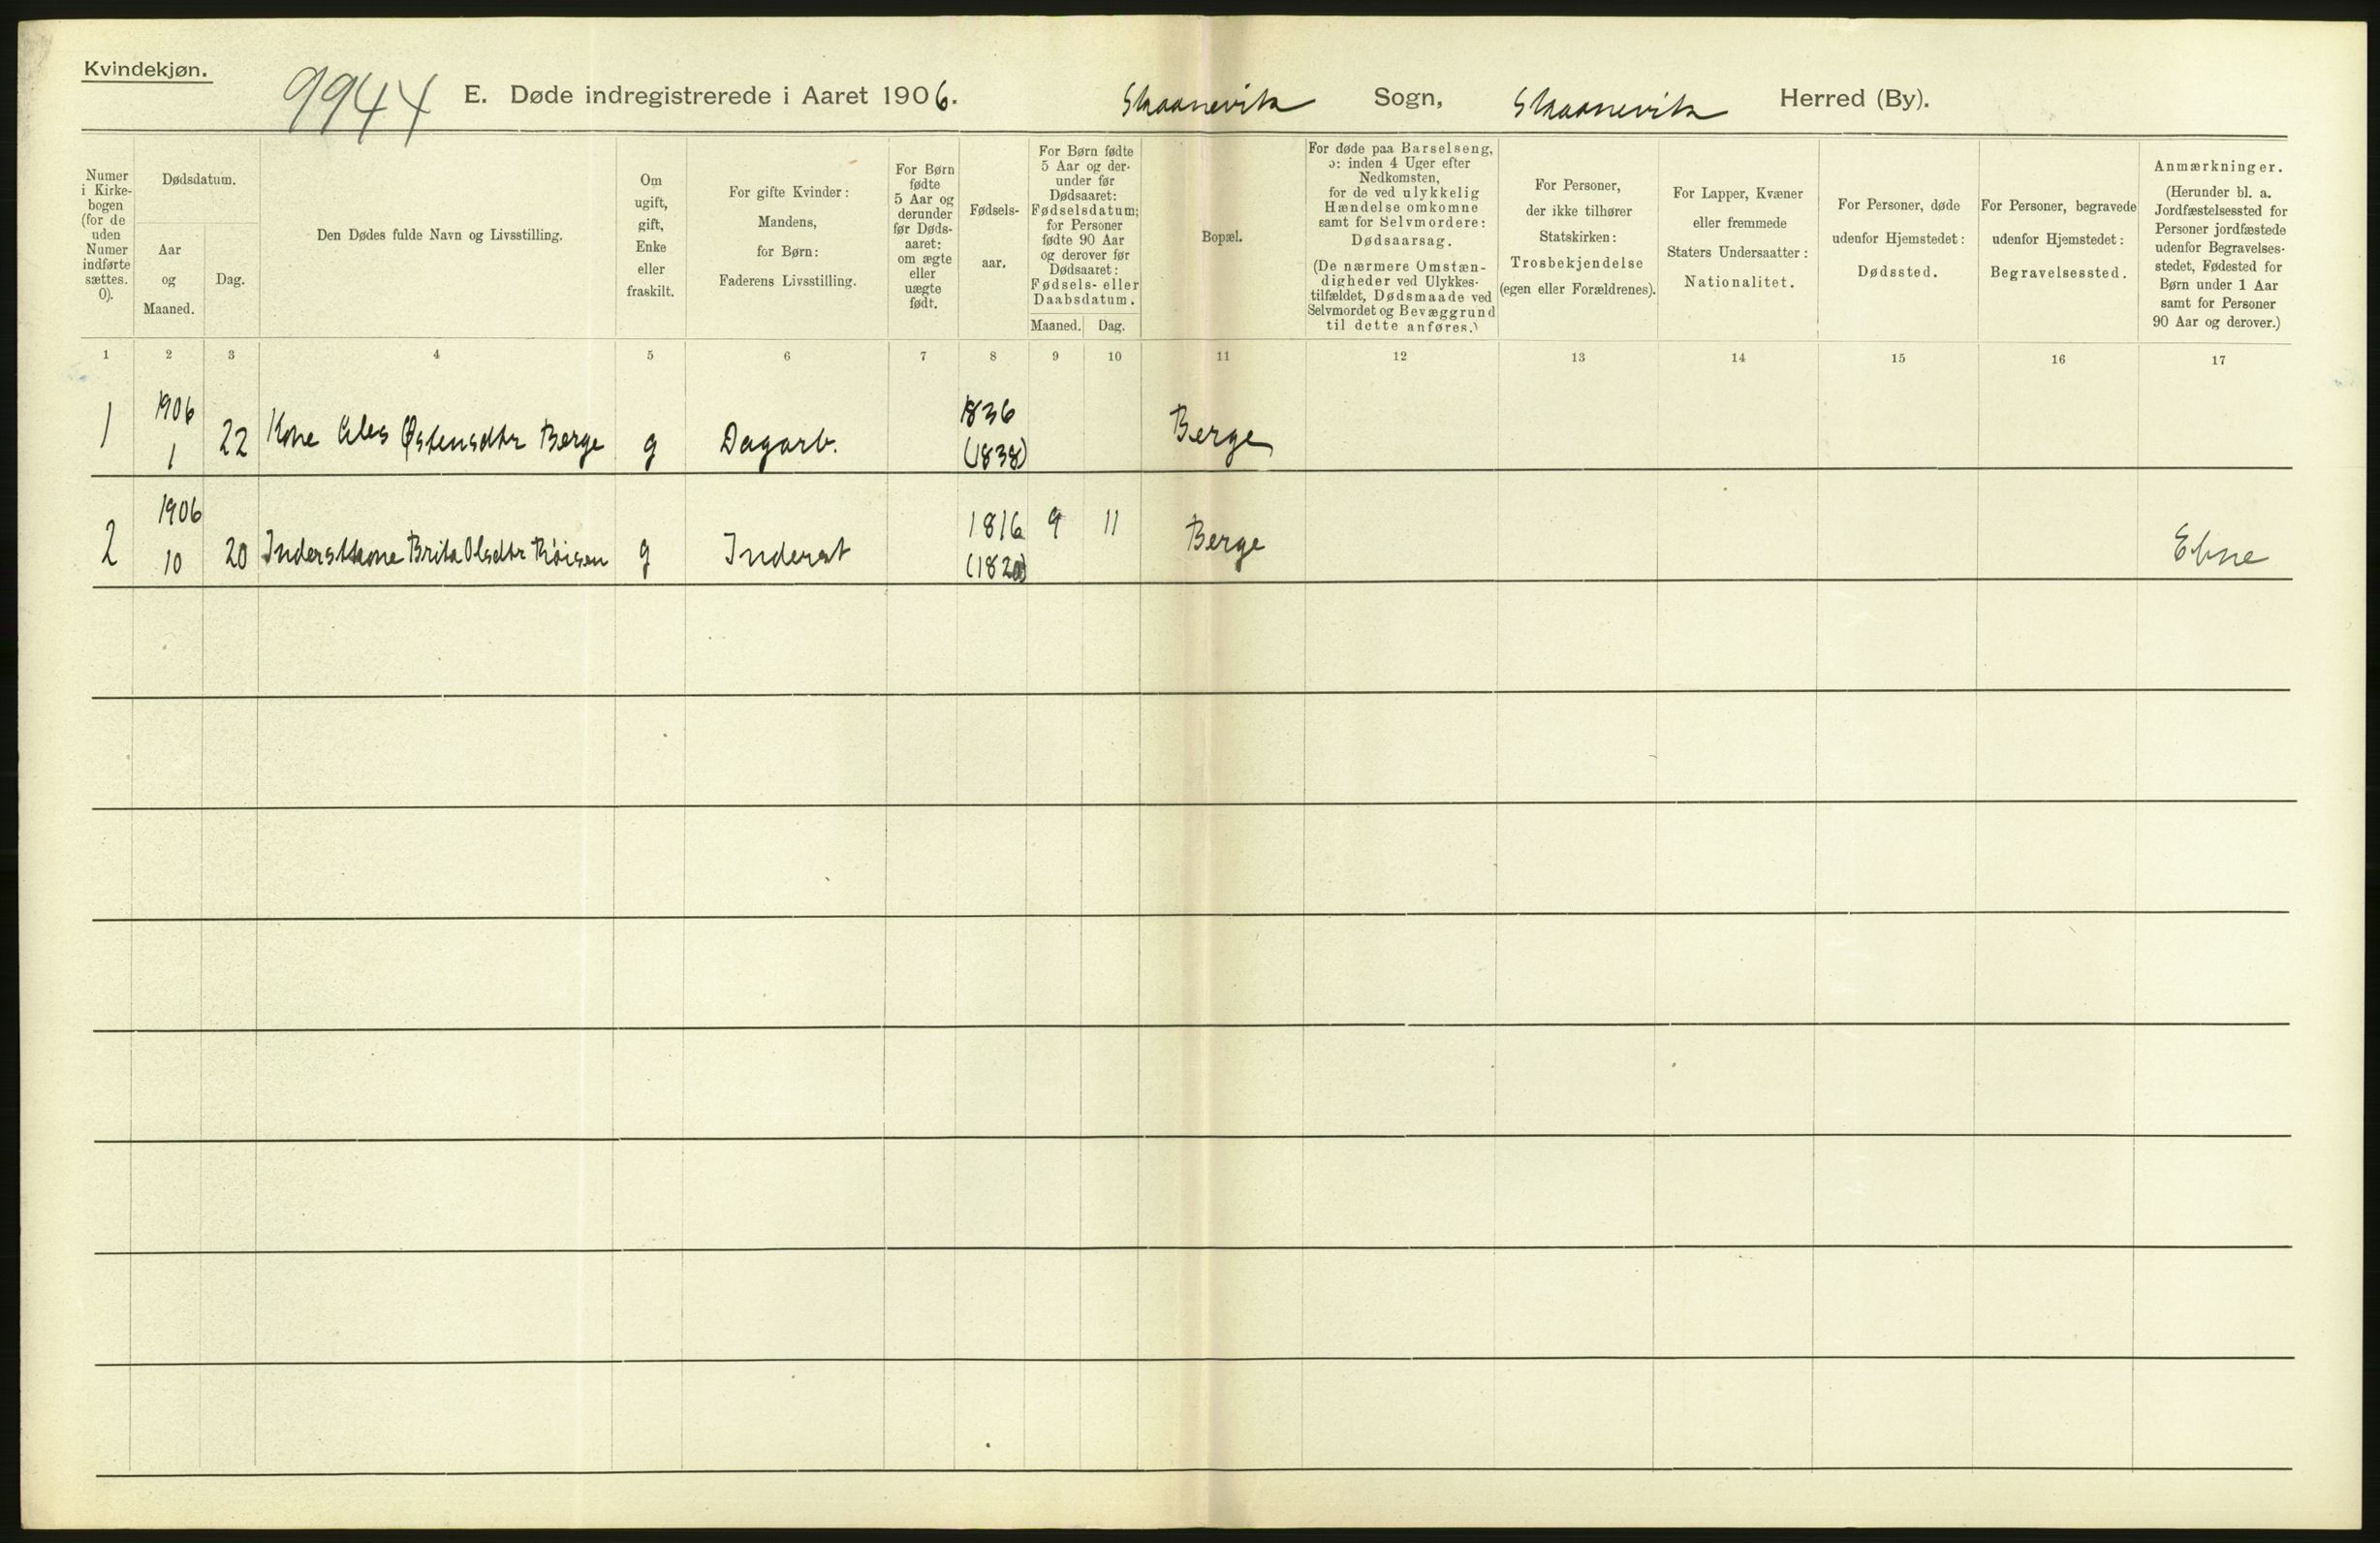 Kvindekjøn.
9944
E. Døde indregistrerede i Aaret 1906.
Skaanevik Sogn, Skaanevik Herred (By).
Numer
i Kirke-
bogen
(for de
uden
Numer
indførte
sættes.
0).
Dødsdatum.
Aar
og
Maaned.
Dag.
Den Dødes fulde Navn og Livsstilling.
Om
ugift,
gift,
Enke
eller
fraskilt.
For gifte Kvinder:
Mandens,
for Børn:
Faderens Livsstilling.
For Børn
fødte
5 Aar og
derunder
før Døds-
aaret:
om ægte
eller
uægte
født.
Fødsels-
aar.
For Børn fødte
5 Aar og der-
under før
Dødsaaret:
Fødselsdatum;
for Personer
fødte 90 Aar
og derover før
Dødsaaret:
Fødsels- eller
Daabsdatum.
Maaned. Dag.
Bopæl.
For døde paa Barselseng,
ɔ: inden 4 Uger efter
Nedkomsten,
for de ved ulykkelig
Hændelse omkomne
samt for Selvmordere:
Dødsaarsag.
(De nærmere Omstæn-
digheder ved Ulykkes-
tilfældet, Dødsmaade ved
Selvmordet og Bevæggrund
til dette anføres.)
For Personer,
der ikke tilhører
Statskirken:
Trosbekjendelse
(egen eller Forældrenes).
For Lapper, Kvæner
eller fremmede
Staters Undersaatter:
Nationalitet.
For Personer, døde
udenfor Hjemstedet:
Dødssted.
For Personer, begravede
udenfor Hjemstedet:
Begravelsessted.
Anmærkninger.
(Herunder bl. a.
Jordfæstelsessted for
Personer jordfæstede
udenfor Begravelses-
stedet, Fødested for
Børn under 1 Aar
samt for Personer
90 Aar og derover.)
1 2 3 4 5 6 7 8 9 10 11 12 13 14 15 16 17
1906 1836
1 1 22 Kone Østensdtr Berge g Dagarb. (1838) Berge
1906 1816 9 11
2 10 20 Brita Olsdtr g Inderst Berge Ebne